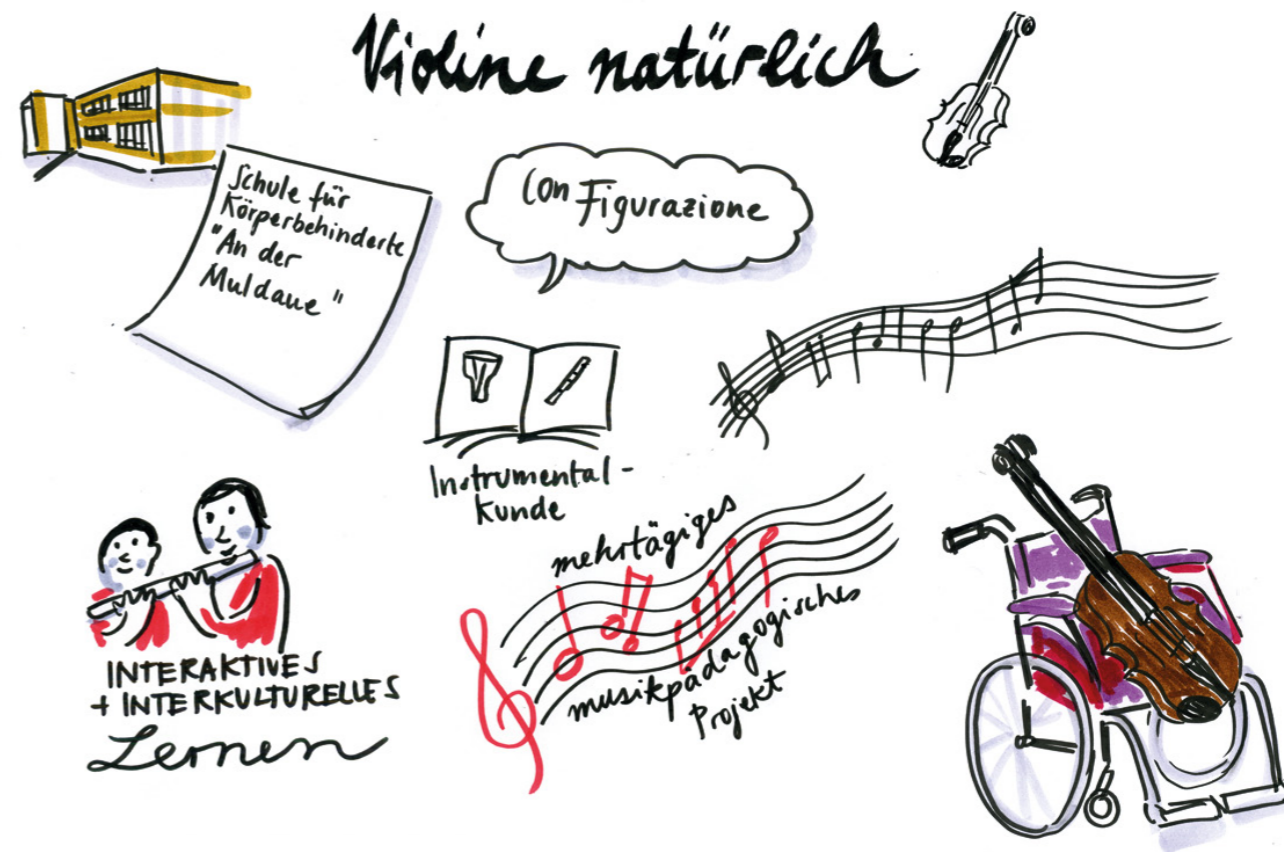 Violine natürlich
Schule für
Körperbehinderte
"An der
Muldaue"
Con Figurazione
Instrumental-
kunde
mehrtägiges
musikpädagogisches
Projekt
INTERAKTIVES
+ INTERKULTURELLES
Lernen